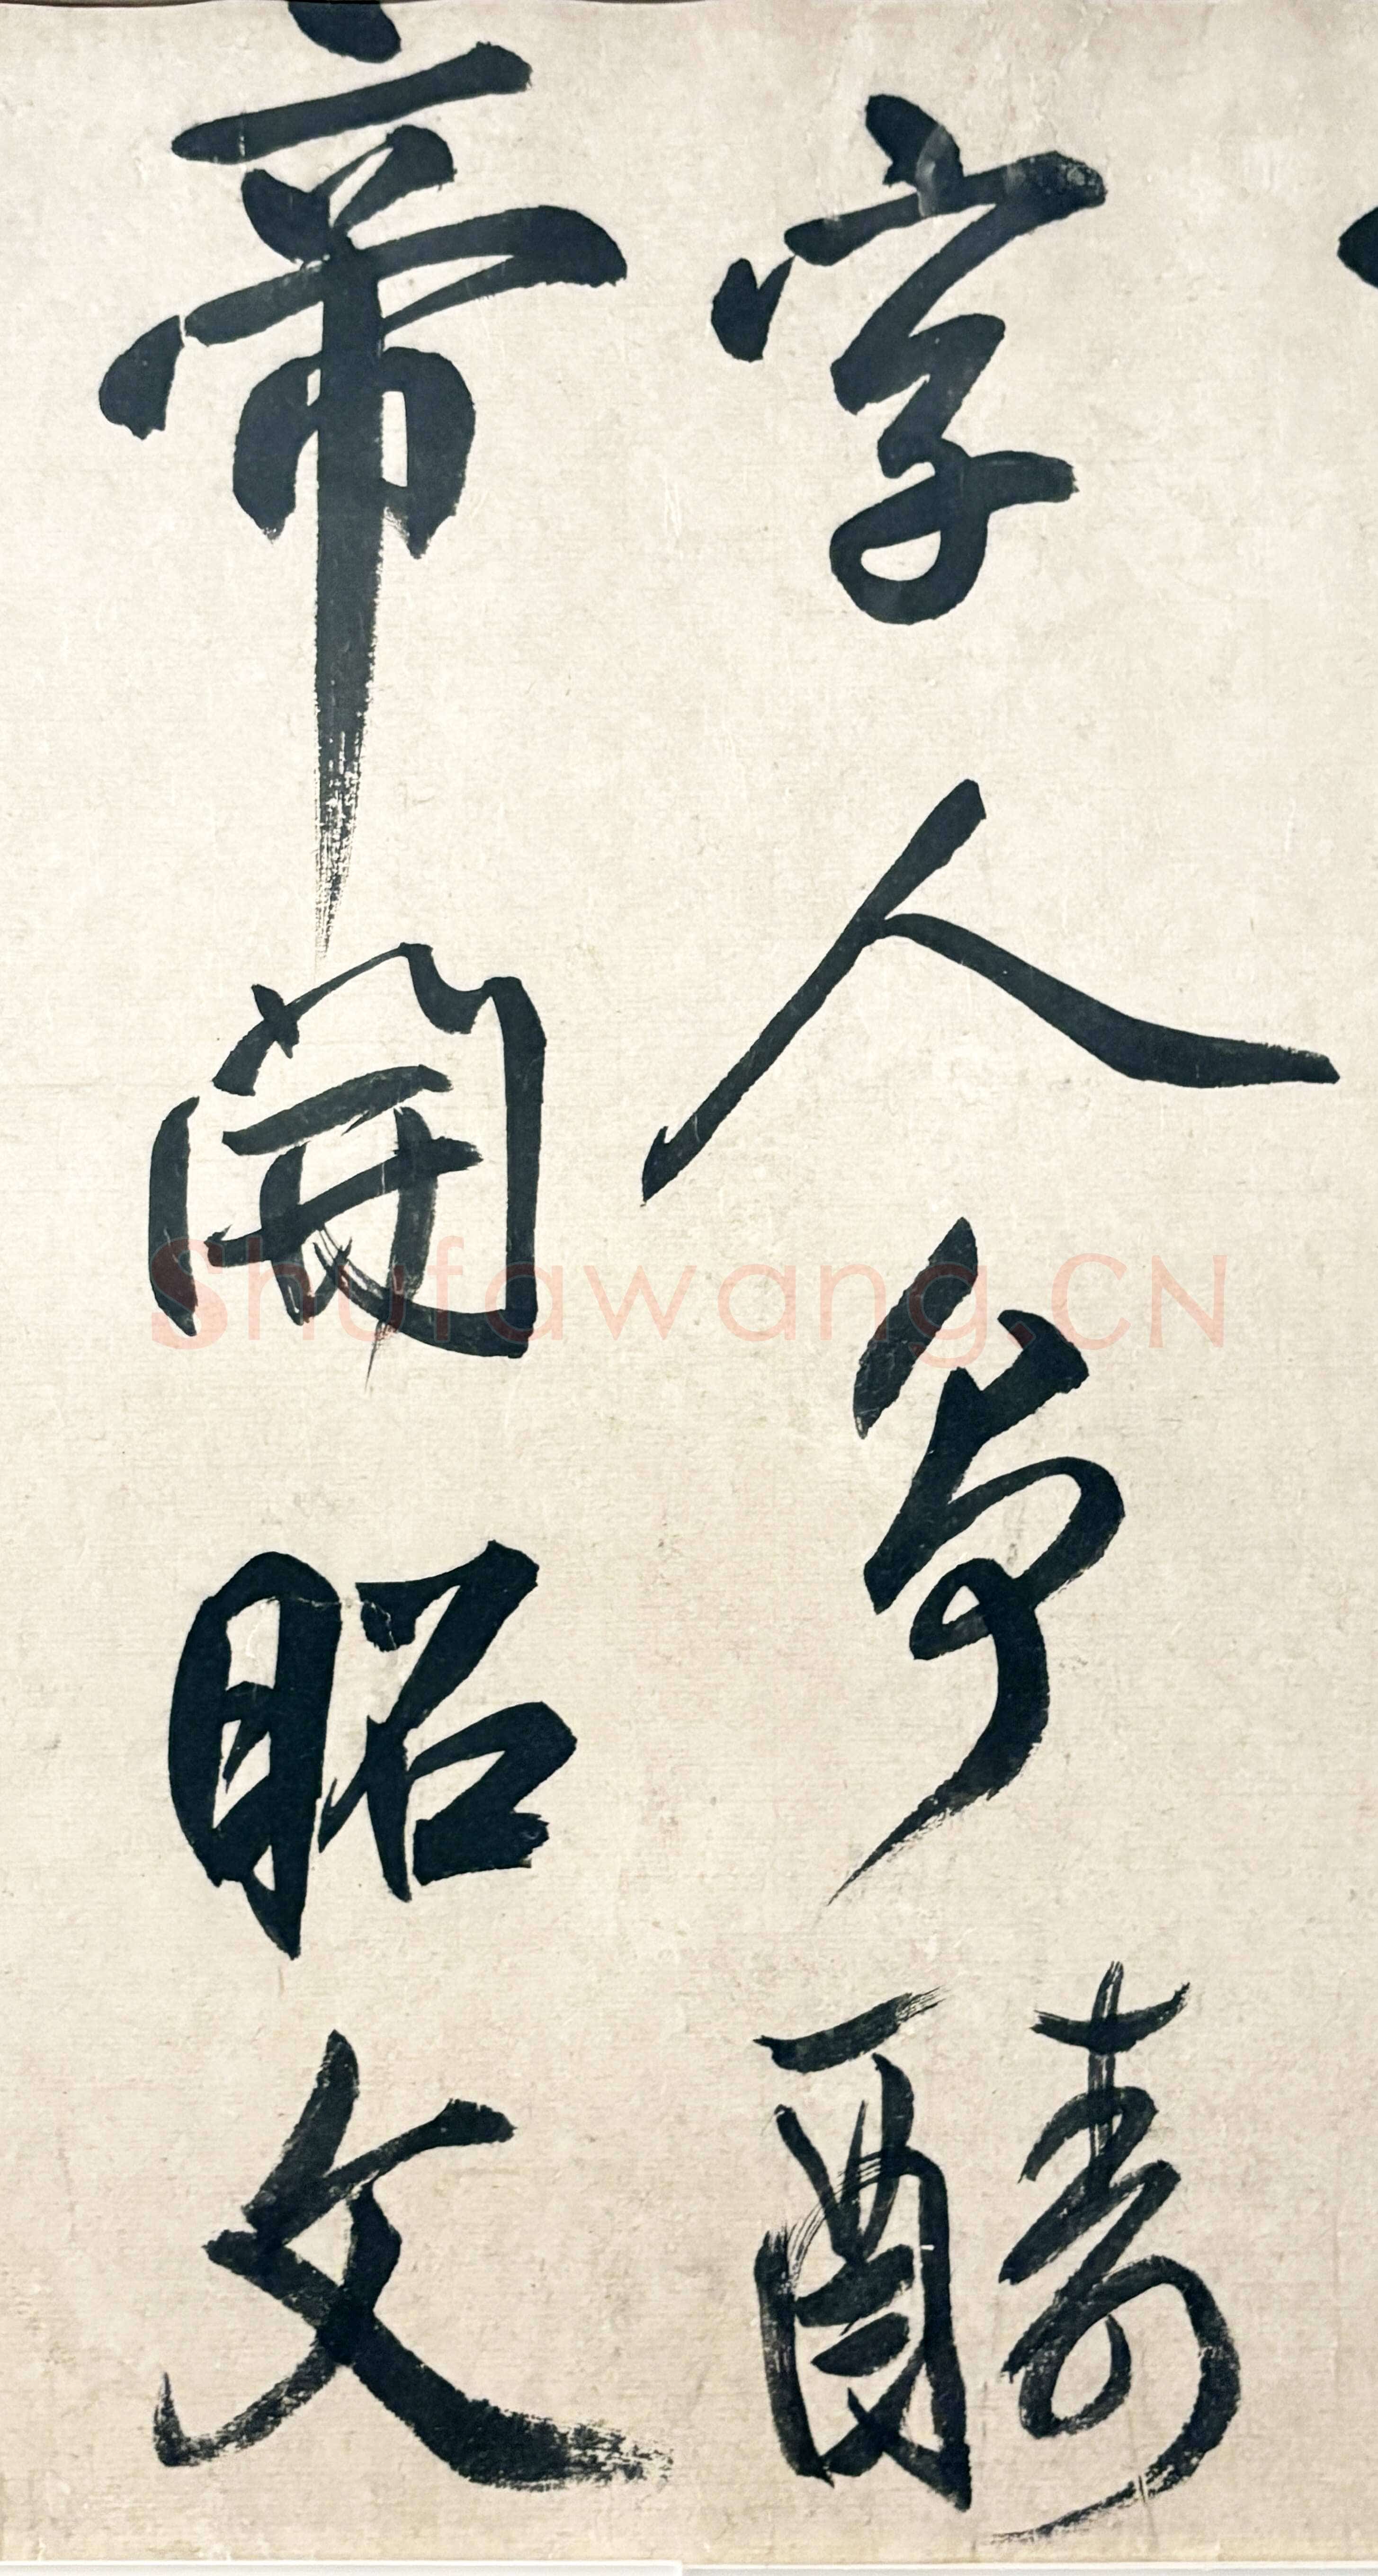 字人争酬
帝開昭文
Shufawang.CN